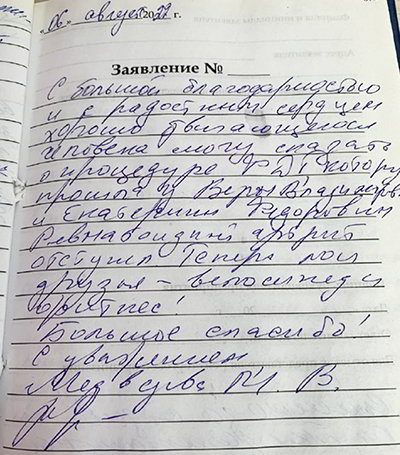 "06" август 2022 г.
Заявление №
С большой благодарностью
и с радостным сердцем
хорошо двигающегося
человека могу сказать
о процедуре РДТ котору
прошла у Веры Владимиров
и Екатерины Федоровны
Ревматоидный артрит
отступил Теперь мои
друзья – велосипед и
фитнес!
Большое спасибо!
С уважением
М. В.